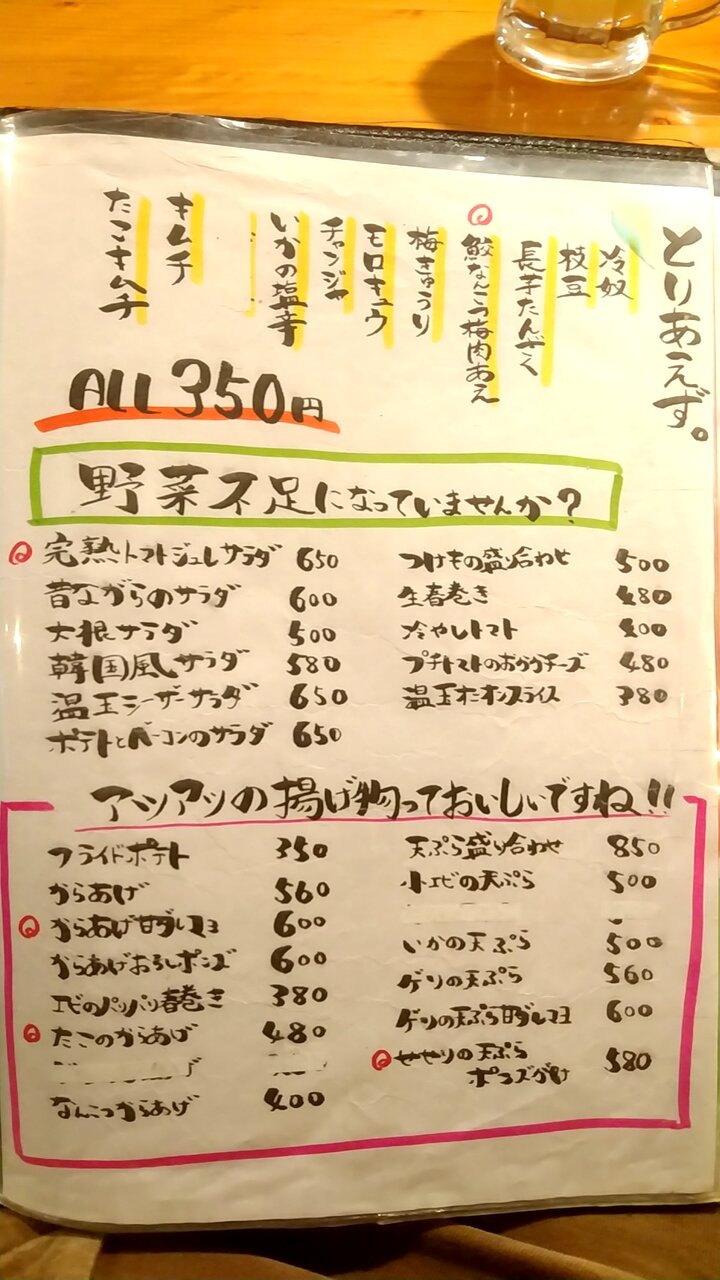 とりあえず。
冷奴
枝豆
長芋たんざく
鮫なんこつ梅肉あえ
梅きゅうり
モロキュウ
チャンジャ
いかの塩辛
キムチ
たこキムチ
ALL 350円
野菜不足になっていませんか?
完熟トマトジュレサラダ 650
昔ながらのサラダ 600
大根サラダ 500
韓国風サラダ 580
温玉シーザーサラダ 650
ポテトとベーコンのサラダ 650
つけもの盛り合わせ 500
生春巻き 480
冷やしトマト 400
プチトマトのおつうチーズ 480
温玉オニオンスライス 380
アツアツの揚げ物っておいしいですね!!
フライドポテト 350
からあげ 560
からあげ甘ダレマヨ 600
からあげおろしポンズ 600
エビのパリパリ春巻き 380
たこのからあげ 480
なんこつからあげ 400
天ぷら盛り合わせ 850
小エビの天ぷら 500
いかの天ぷら 500
ゲソの天ぷら 560
ゲソの天ぷら甘ダレマヨ 600
せせりの天ぷら
ポンズがけ 580